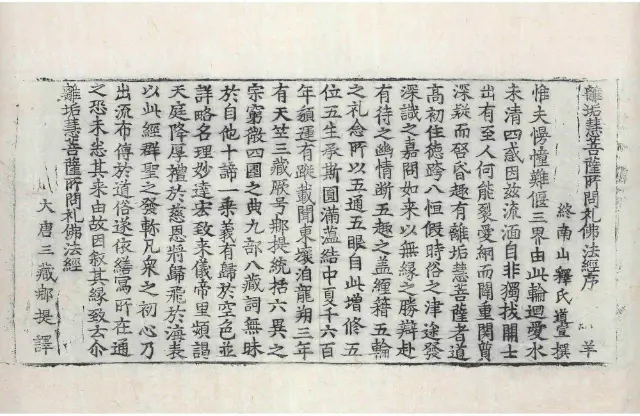 離垢慧菩薩所問礼佛法經序
終南山釋氏道宣撰 羊
惟夫惕憧難偃三界由此輪迴愛水
未清四惑因茲流湎自非獨找開士
出有至人何能裂愛網而開重関曽
深疑而啓昏趣有離垢慧菩薩者道
高初住德跨八恒假時俗之津途發
深識之嘉問如来以無緣之勝辯赴
有待之幽情断五趣之盖纏籍五輪
之礼念所以五通五眼自此增修五
位五生承斯圓滿薀結中夏千六百
年頼運有蹤載聞東壤洎龍朔三年
有天竺三藏厥号那提統括六異之
宗窮徴四圍之典九部八藏詞無昧
於自他十諦一乗義有歸於空色並
詳略名理妙達宏致来儀帝里頻謁
天庭降厚禮於慈恩将歸飛於海表
以此經群聖之發軫凡衆之初心乃
出流布傳於道俗遂依繕寫所在通
之恐未悉其来由故因叙其緣致云尒
離垢慧菩薩所問礼佛法經
大唐三藏那提譯